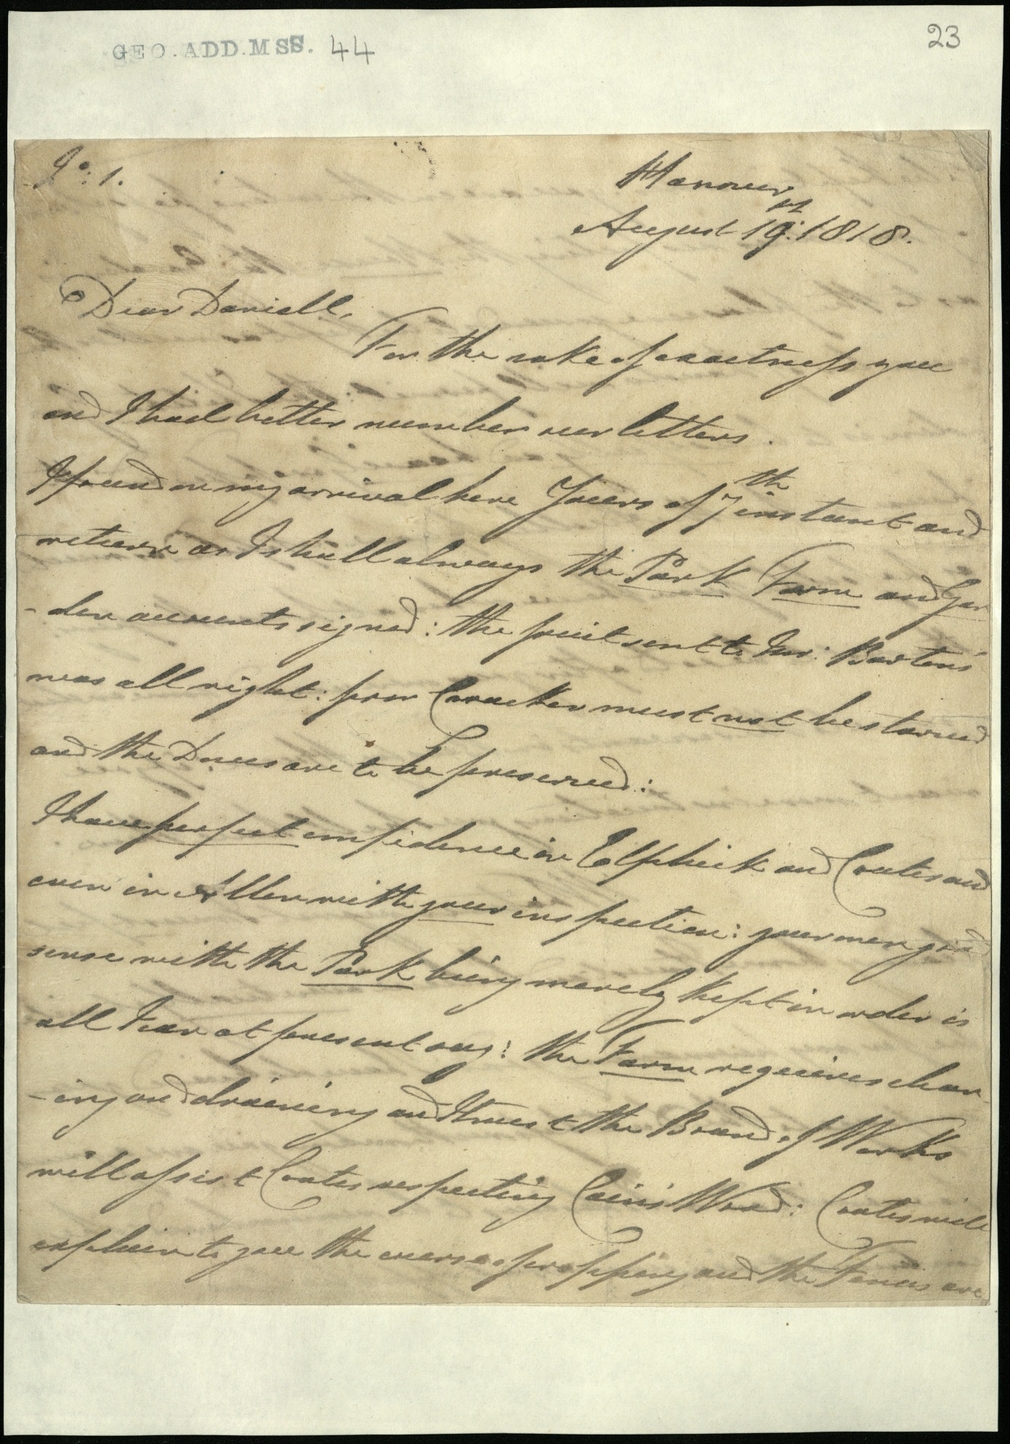 GEO. ADD. MSS. 44
23
No: 1.
Hanover
August 19th: 1818.
Dear Daniell,
For the sake of exactness you
and I had better number our letters.
I found on my arrival here Yours of 7th instant and
return as I shall always the Park Farm and Gar
-den accounts signed: the fruit sent to Mrs: Barton's
was all right: poor Cracker must not be starved
and the Does are to be preserved:
I have perfect confidence in Elphick and Coates and
even in Allen with your inspection: your men good
sense with the Park being merely kept in order is
all I can at present say: the Farm requires clean
-ing and draining and I trust the Board of Works
will assist Coates respecting Wood: Coates will
explain to you the and the Fences are